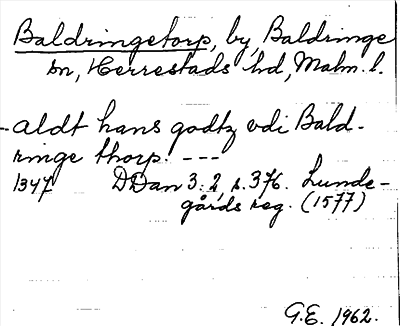 Baldringetorp, by, Baldringe
sn, Herrestads hd, Malm. l.
- aldt hans godtz vdi Bald-
ringe thorp. ---
1347 DDan 3: 2, s. 376. Lunde-
gårds reg. (1577)
G.E. 1962.